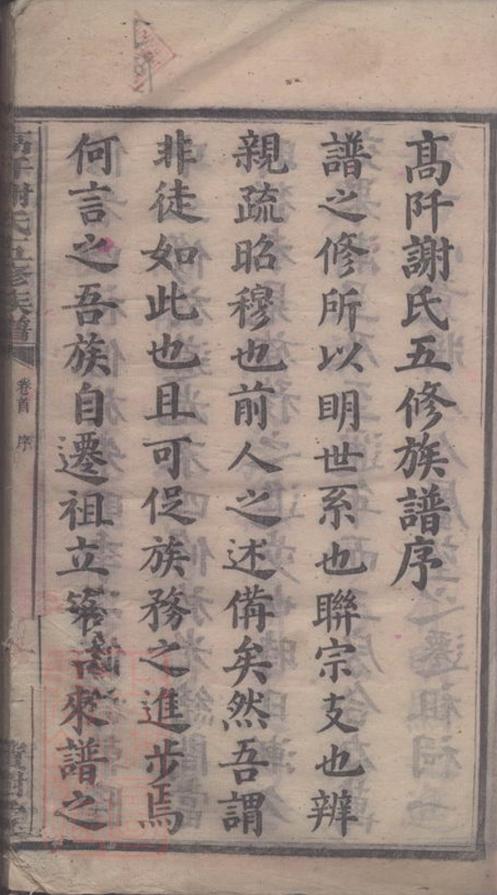 高阡謝氏五修族譜序
譜之修所以明世系也聯宗支也辨
親疏昭穆也前人之述備矣然吾謂
非徒如此也且可促族務之進步焉
何言之吾族自遷祖立籍來譜之
高阡謝氏五修族譜
卷首 序